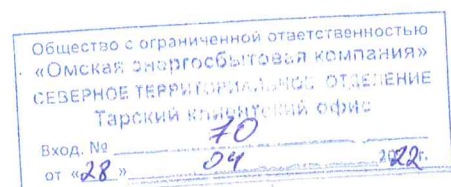 Общество с ограниченной ответственностью
«Омская энергосбытовая компания»
СЕВЕРНОЕ ТЕРРИТОРИАЛЬНОЕ ОТДЕЛЕНИЕ
Тарский клиентский офис
Вход. № 70
от «28» 04 2022г.